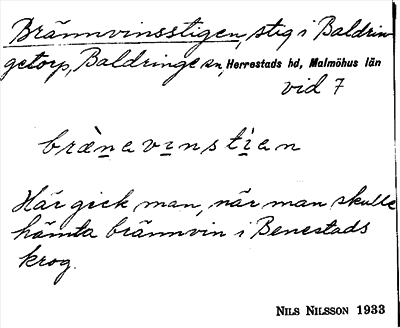 Brännvinsstigen, stig i Baldrin-
getorp, Baldringe sn, Herrestads hd, Malmöhus län
vid 7
brὲnavinstìen
Här gick man, när man skulle
hämta brännvin i Benestads
krog.
NILS NILSSON 1933